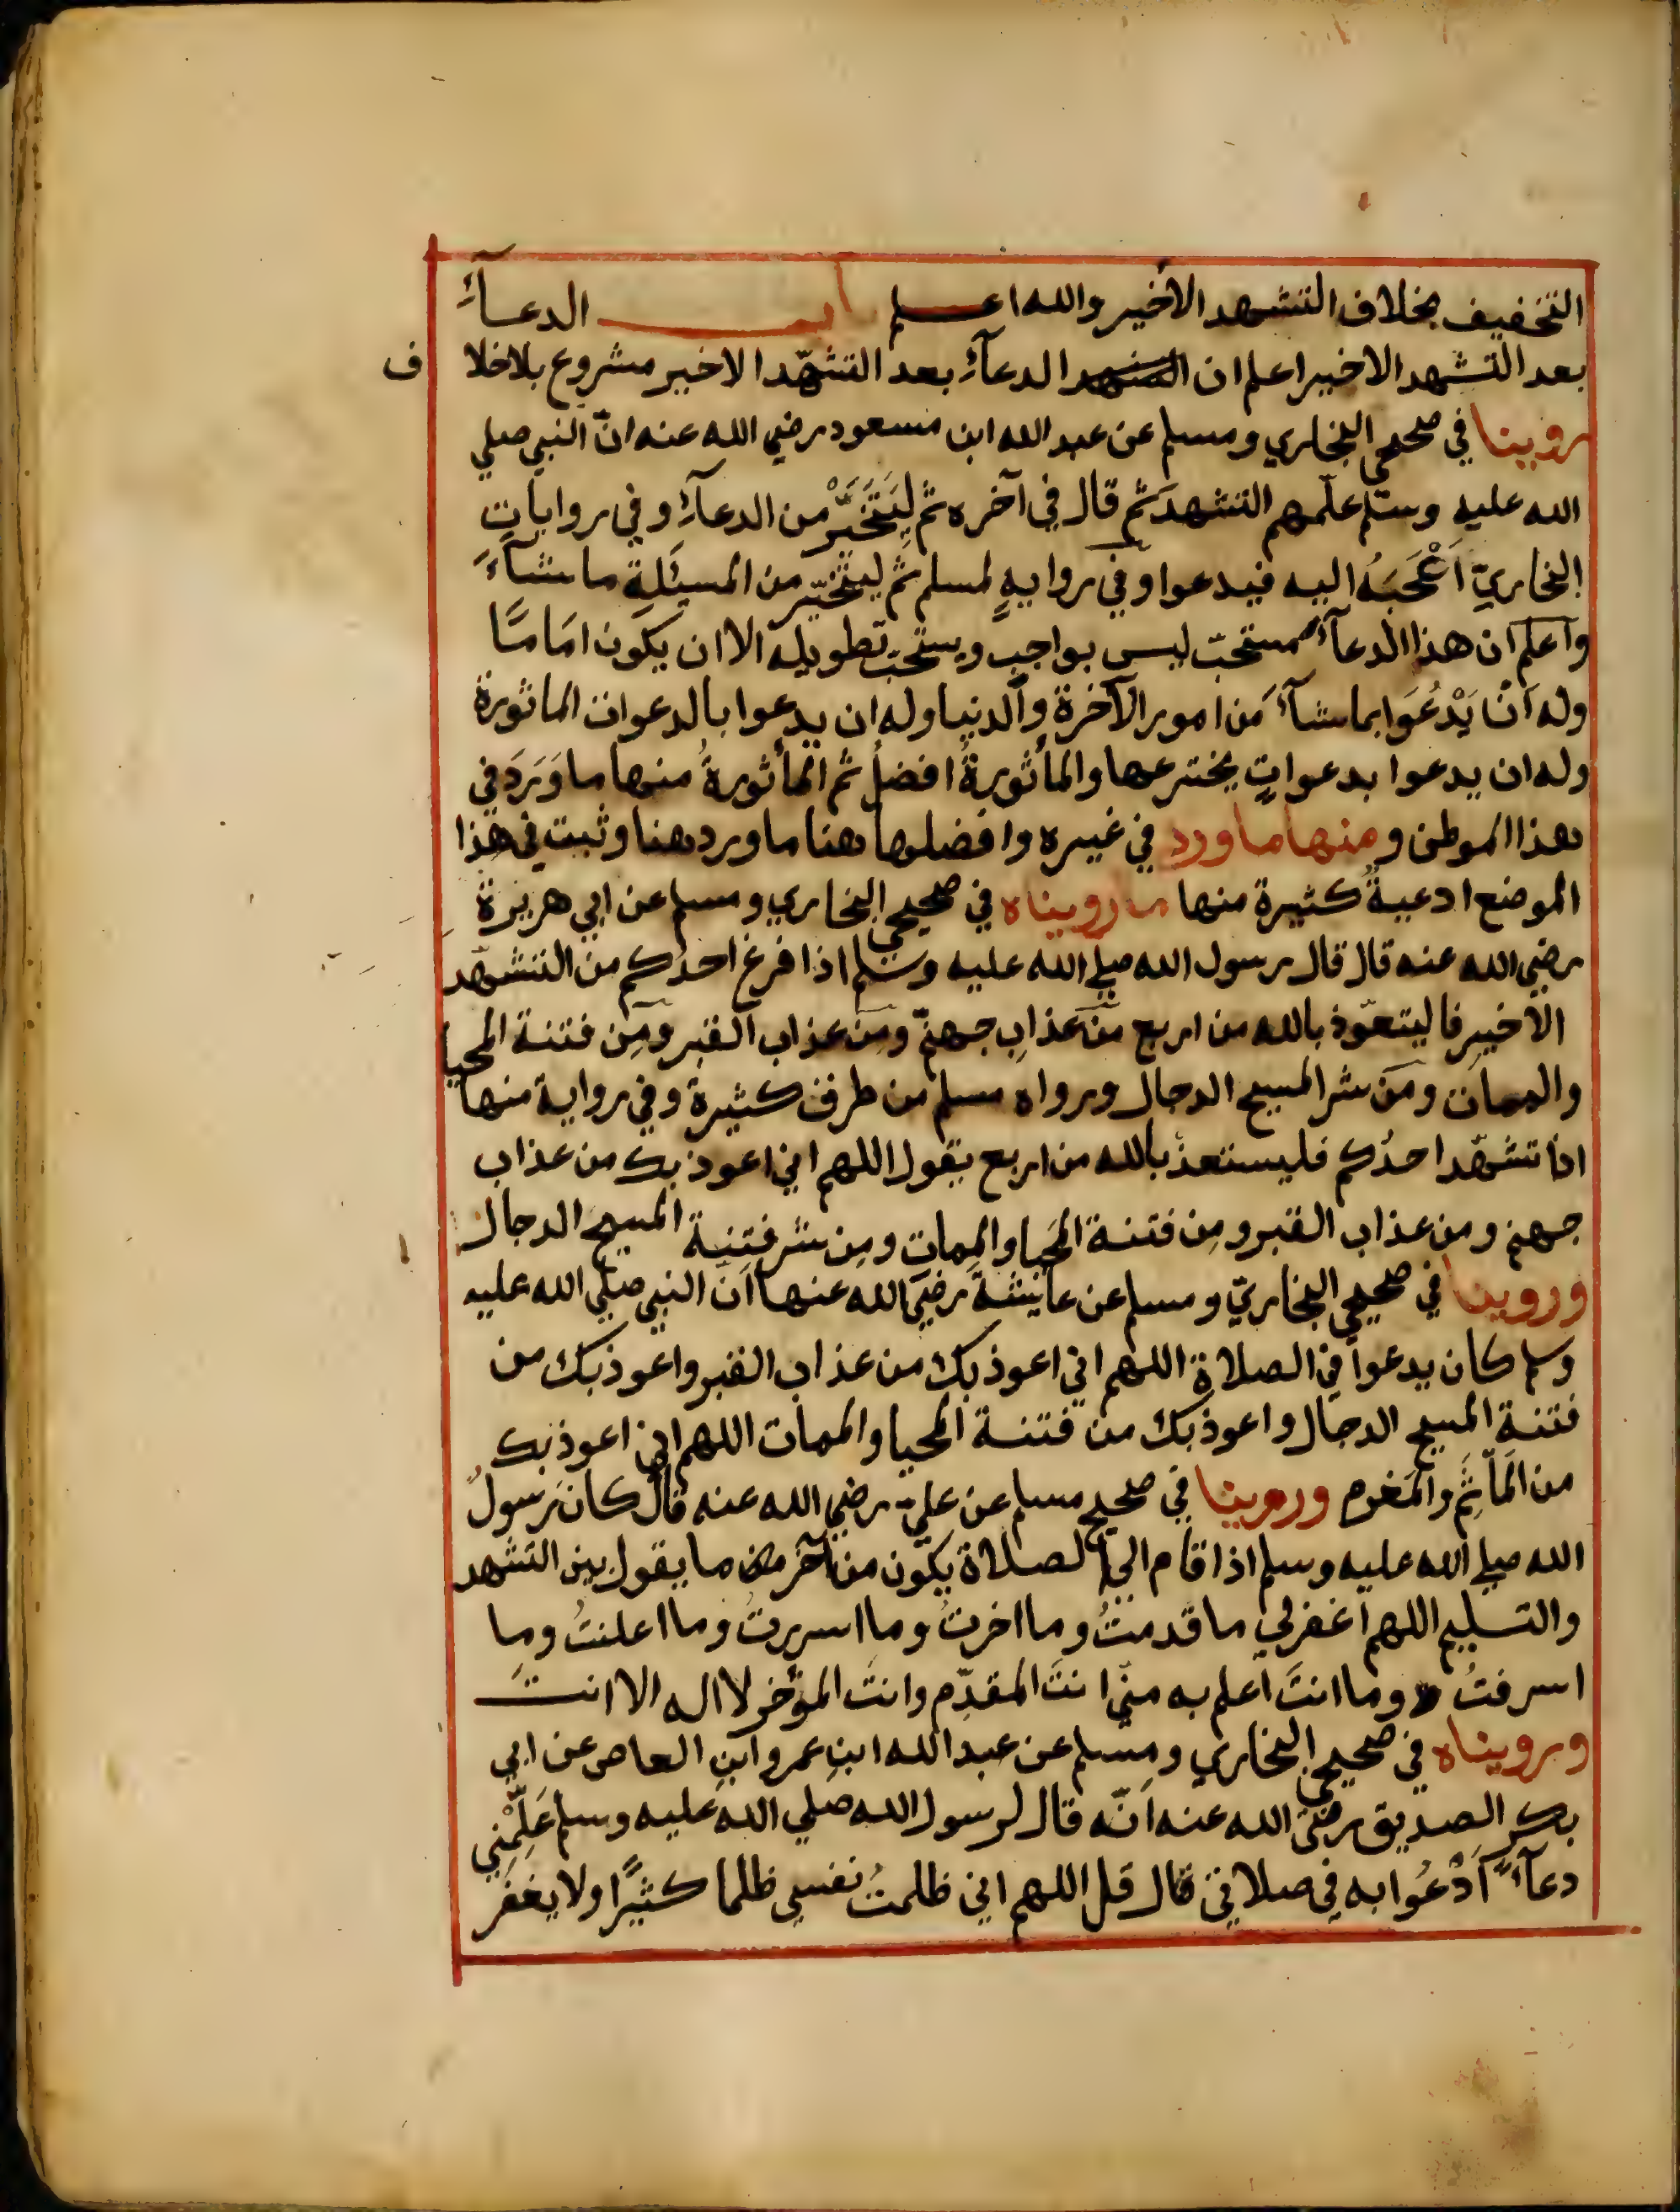 التخفيف بخلاف التشهد الأخير والله اعلم باب الدعآء
بعد التشهد الاخير اعلم ان التشهد الدعآء بعد التشهّد الاخير مشروع بلا خلاف
روينا في صحيحي البخاري ومسلم عن عبد الله ابن مسعود رضي الله عنه انّ النبي صلي
الله عليه وسلم علّمهم التشهد ثم قال في آخره ثم لِيَتَخَيَّرْ من الدعآءِ وفي رواياتِ
البخاريّ اَعْجَبَهُ اليه فيدعوا وفي روايةٍ لمسلم ثم ليتخيّر من المسئلة ماشآءَ
واعلم ان هذا الدعآء مستحبّ ليس بواجب ويستحبّ تطويله الا ان يكون امامًا
وله اَنْ يَدْعُوَا بماشآء من امور الآخرة والدنيا وله ان يدعوا بالدعوات الماثورة
وله ان يدعوا بدعواتٍ يخترعها والمأثورةُ افضلُ ثم المأثورةُ منها ما وَرَدَ في
هذا الموطن ومنها ما ورد في غيره وافضلها هنا ما ورد هنا وثبت في هذا
الموضع ادعيةٌ كثيرة منها ما رويناه في صحيحي البخاري ومسلم عن ابي هريرة
رضي الله عنه قال قال رسول الله صلي الله عليه وسلم اذا فرغ احدُكم من التشهّد
الاخيرِ فاليتعوّذ بالله من اربع مّن عذابِ جهنّم ومن عذاب القبر ومِن فتنة المحيا
والممات ومن شر المسيح الدجال ورواه مسلم من طرق كثيرة وفي رواية منها
اذا تشهّد احدُكم فليستعذ بالله من اربع يقول اللهم اني اعوذ بك من عذاب
جهنم ومن عذاب القبر ومِن فتنة المَحيا والمماتِ ومِن شر فتنة المسيح الدجال
وروينا في صحيحي البخاريّ ومسلم عن عائشة رضي الله عنها انّ النبي صلي الله عليه
وسلم كان يدعوا في الصلاة اللهم اني اعوذ بك من عذاب القبر واعوذ بك من
فتنة المسيح الدجال واعوذ بك من فتنة المحيا والممات اللهم اني اعوذ بك
من المَأثَمِ والمَغرم وروينا في صحيح مسلم عن عليّ رضي الله عنه قال كان رسولُ
الله صلي الله عليه وسلم اذا قام الي الصلاة يكون من آخر ما يقول بين التشهد
والتسليم اللهم اغفرلي ما قدمتُ وما اخرتُ وما اسررتُ وما اعلنتُ وما
اسرفتُ وما انتَ اعلم به منّي انتَ المقدِّم وانتَ المؤخر لا اله الا انت
ورويناه في صحيحي البخاري ومسلم عن عبد الله ابنِ عمرو ابنِ العاص عن ابي
بكرِ الصديق رضي الله عنه اَنّه قال لرسول الله صلي الله عليه وسلم عَلِّمْنِي
دعآءً اَدْعُوا به في صلاتي قال قل اللهم اني ظلمتُ نفسي ظلما كثيًرا ولا يغفر